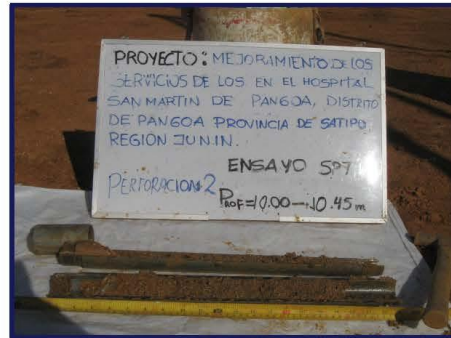 PROYECTO: MEJORAMIENTO DE LOS
SERVICIOS DE LOS EN EL HOSPITAL
SAN MARTIN DE PANGOA, DISTRITO
DE PANGOA PROVINCIA DE SATIPO,
REGION JUNIN.
ENSAYO SPT
PERFORACION 2
PROF=10.00-10.45m